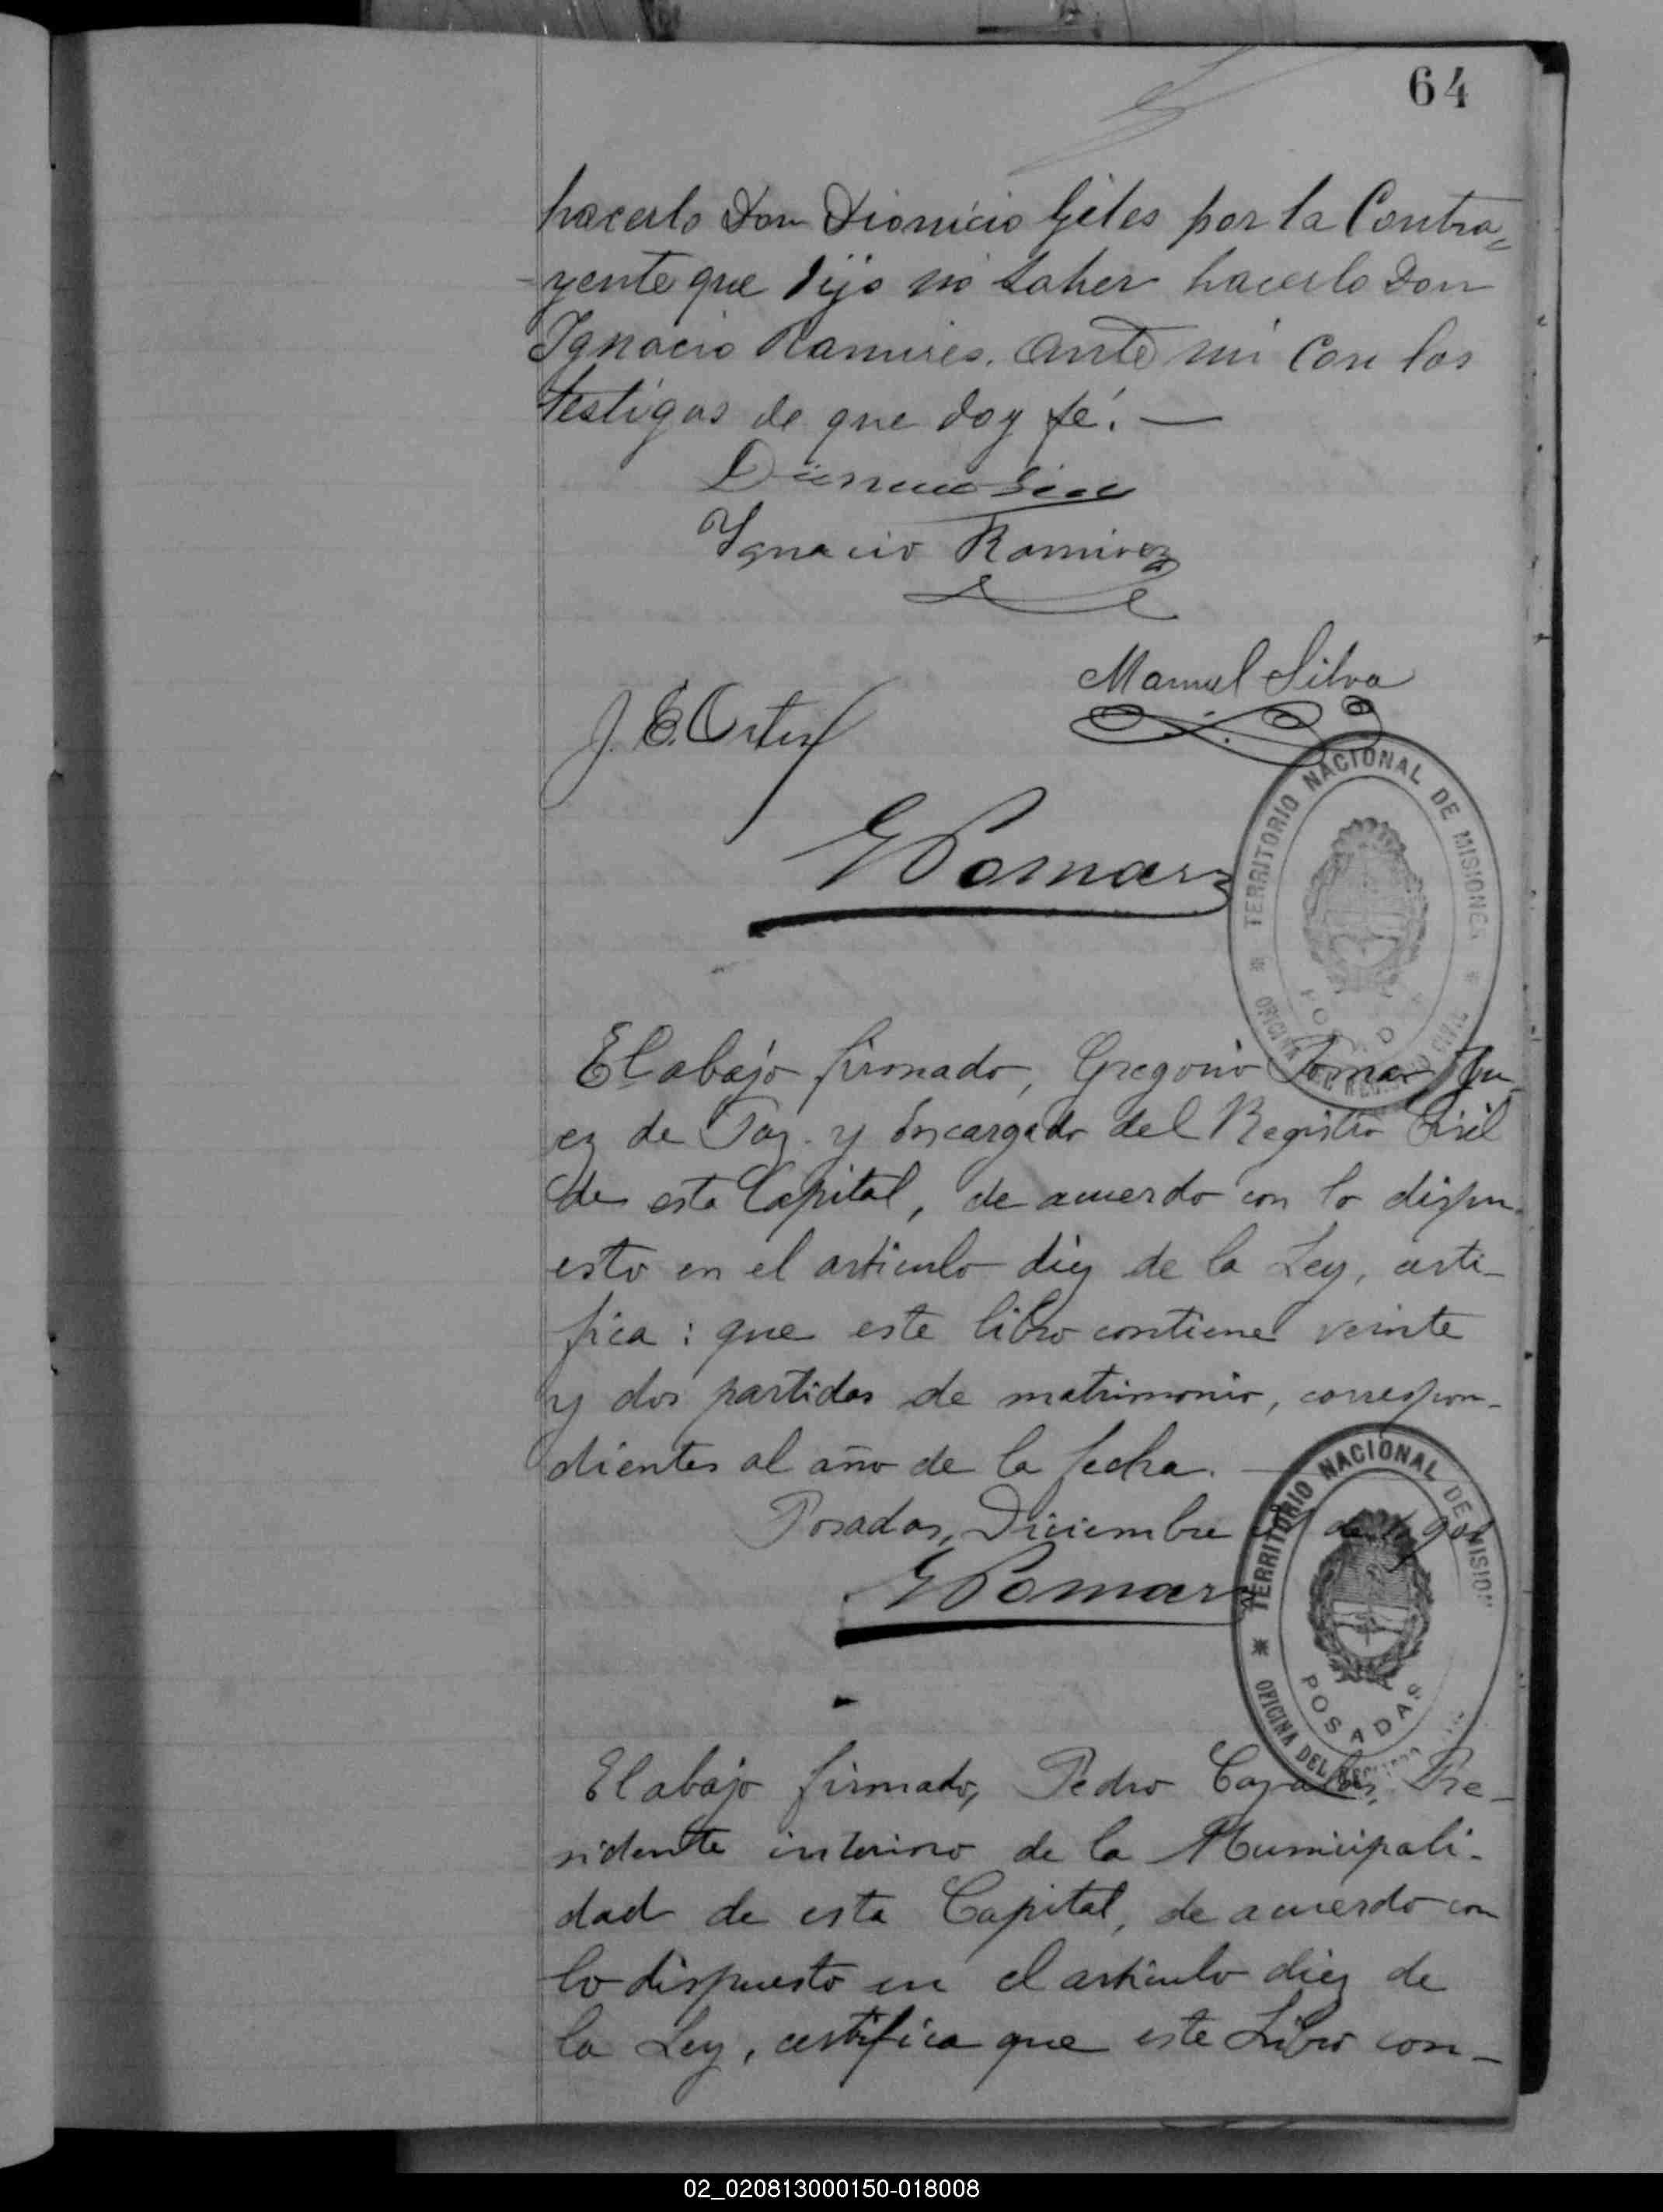 64
hacerlo Don Dionicio Giles por la Contra=
yente que dijo no saber hacerlo Don
Ignacio Ramires. Ante mi con los
testigos de que doy fé. —
Ignacio Ramirez
Manuel Silva
J. E. Ortiz
G Pomar
TERRITORIO NACIONAL DE MISIONES
OFICINA DEL REGISTRO CIVIL
POSADAS
El abajo firmado, Gregorio Pomar Ju-
ez de Paz y Encargado del Registro Civil
de esta Capital, de acuerdo con lo dispu-
esto en el articulo diez de la Ley, certi-
fica: que este libro contiene veinte
y dos partidas de matrimonio, correspon-
dientes al año de la fecha. —
Posadas, Diciembre de
G Pomar
TERRITORIO NACIONAL DE MISION
OFICINA DEL
POSADAS
El abajo firmado, Pedro Pre-
sidente interino de la Municipali-
dad de esta Capital, de acuerdo con
lo dispuesto en el articulo diez de
la Ley, certifica que este Libro con-
02_020813000150-018008